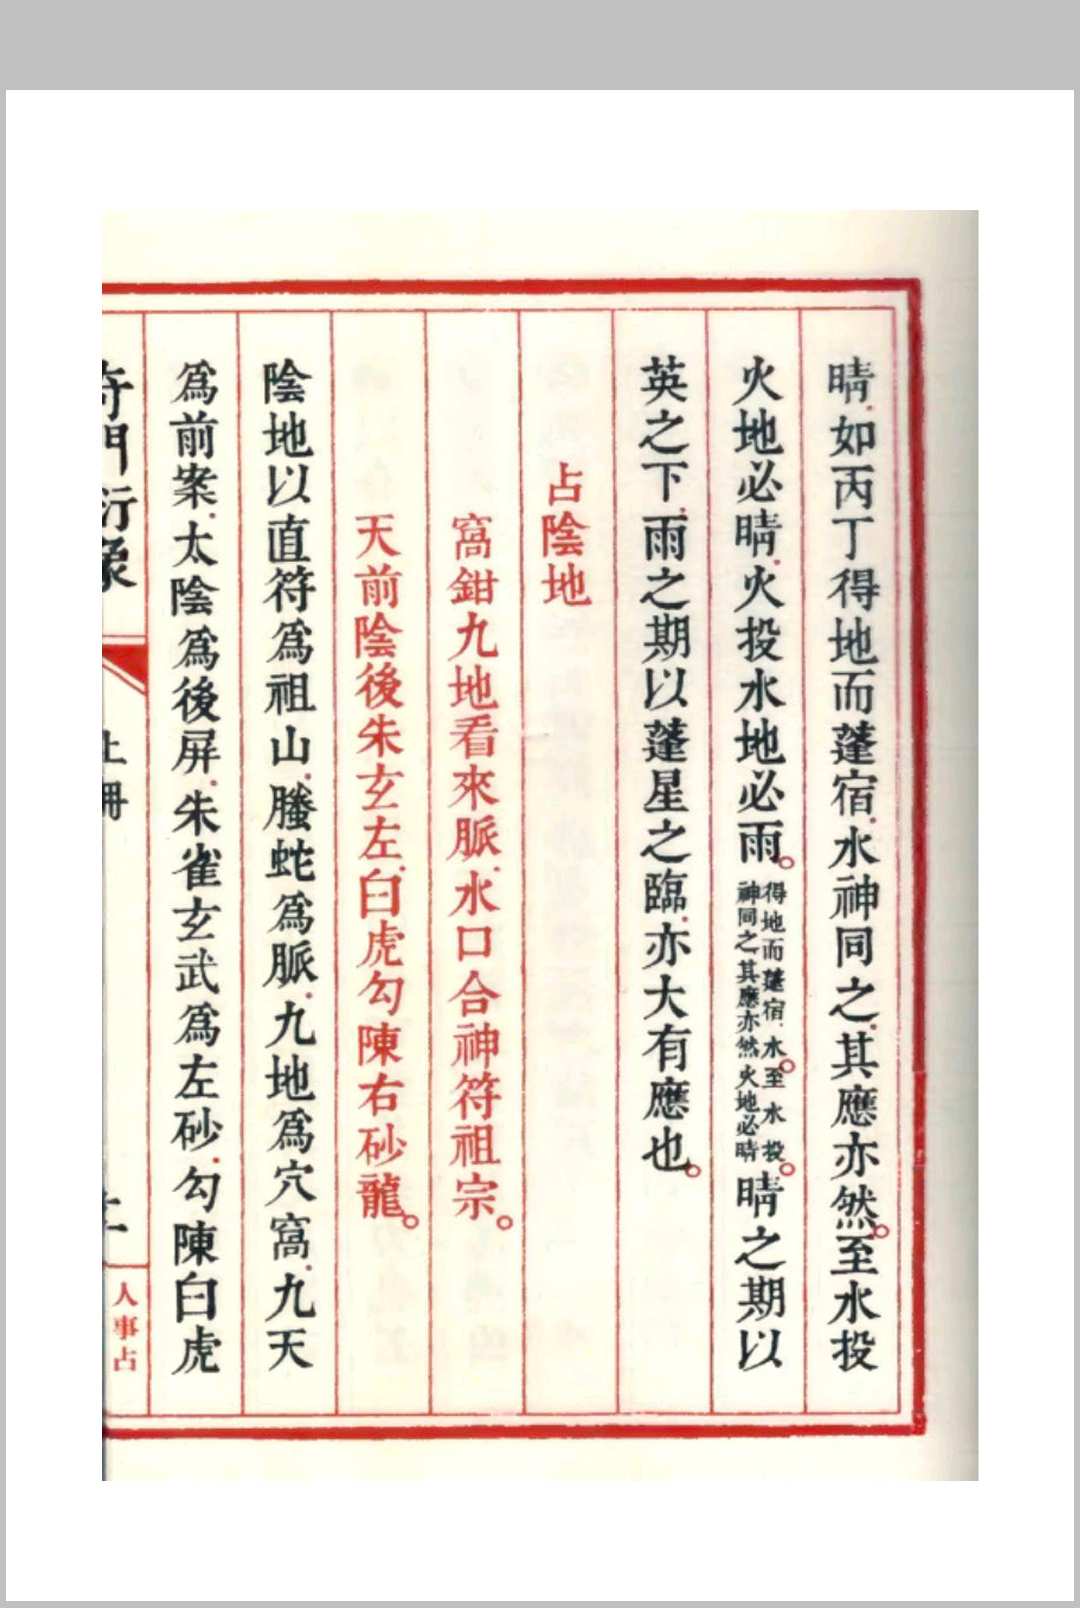 晴.如丙丁得地而蓬宿.水神同之.其應亦然。至水投
火地必晴.火投水地必雨。得地而蓬宿.水。至水投。
神同之其應亦然火地必晴
晴之期以
英之下.雨之期以蓬星之臨.亦大有應也。
占陰地
窩鉗九地看來脈.水口合神符祖宗。
天前陰後朱玄左.白虎勾陳右砂龍。
陰地以直符爲祖山.螣蛇爲脈.九地爲穴窩.九天
爲前案.太陰爲後屏.朱雀玄武爲左砂.勾陳白虎
奇門衍象
上冊
人事占